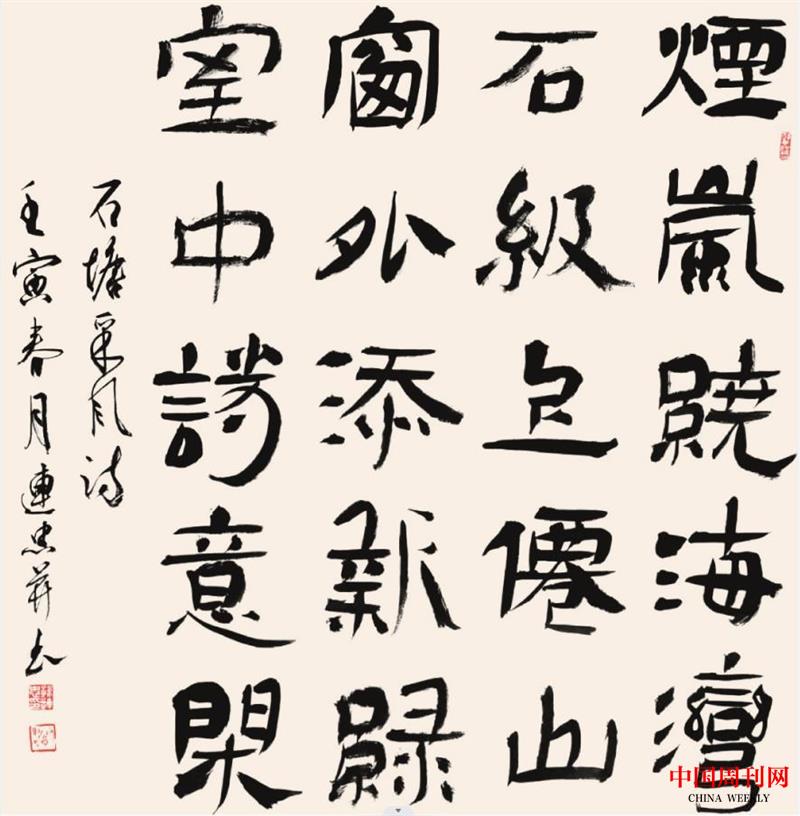 煙嵐繞海灣
石級僊山
窗外添新綠
室中詩意閑
石塘采风诗
壬寅春月連忠书
中国周刊网
CHINA WEEKLY